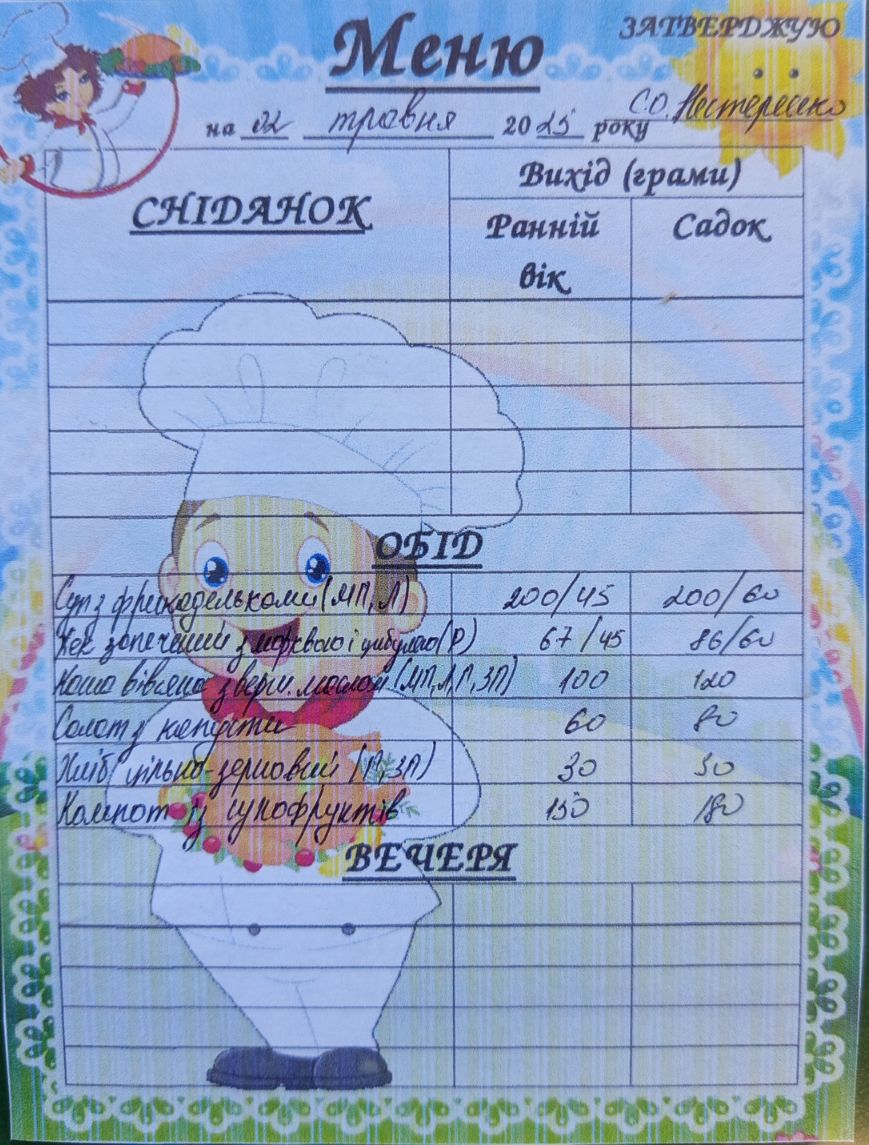 ЗАТВЕРДЖУЮ
Меню
С.О. Нестеренко
на 02 травня 2025 року
СНІДАНОК
Вихід (грами)
Ранній вік
Садок
ОБІД
Суп з фрикадельками (МП, Л) 200/45 200/60
Хек запечений з морквою і цибулею (Р) 67/45 86/60
Каша вівсяна з верш. маслом (МП, Л, Г, ЗП) 100 120
Салат з капусти 60 80
Хліб цільно-зерновий (Г, ЗП) 30 50
Компот із сухофруктів 150 180
ВЕЧЕРЯ